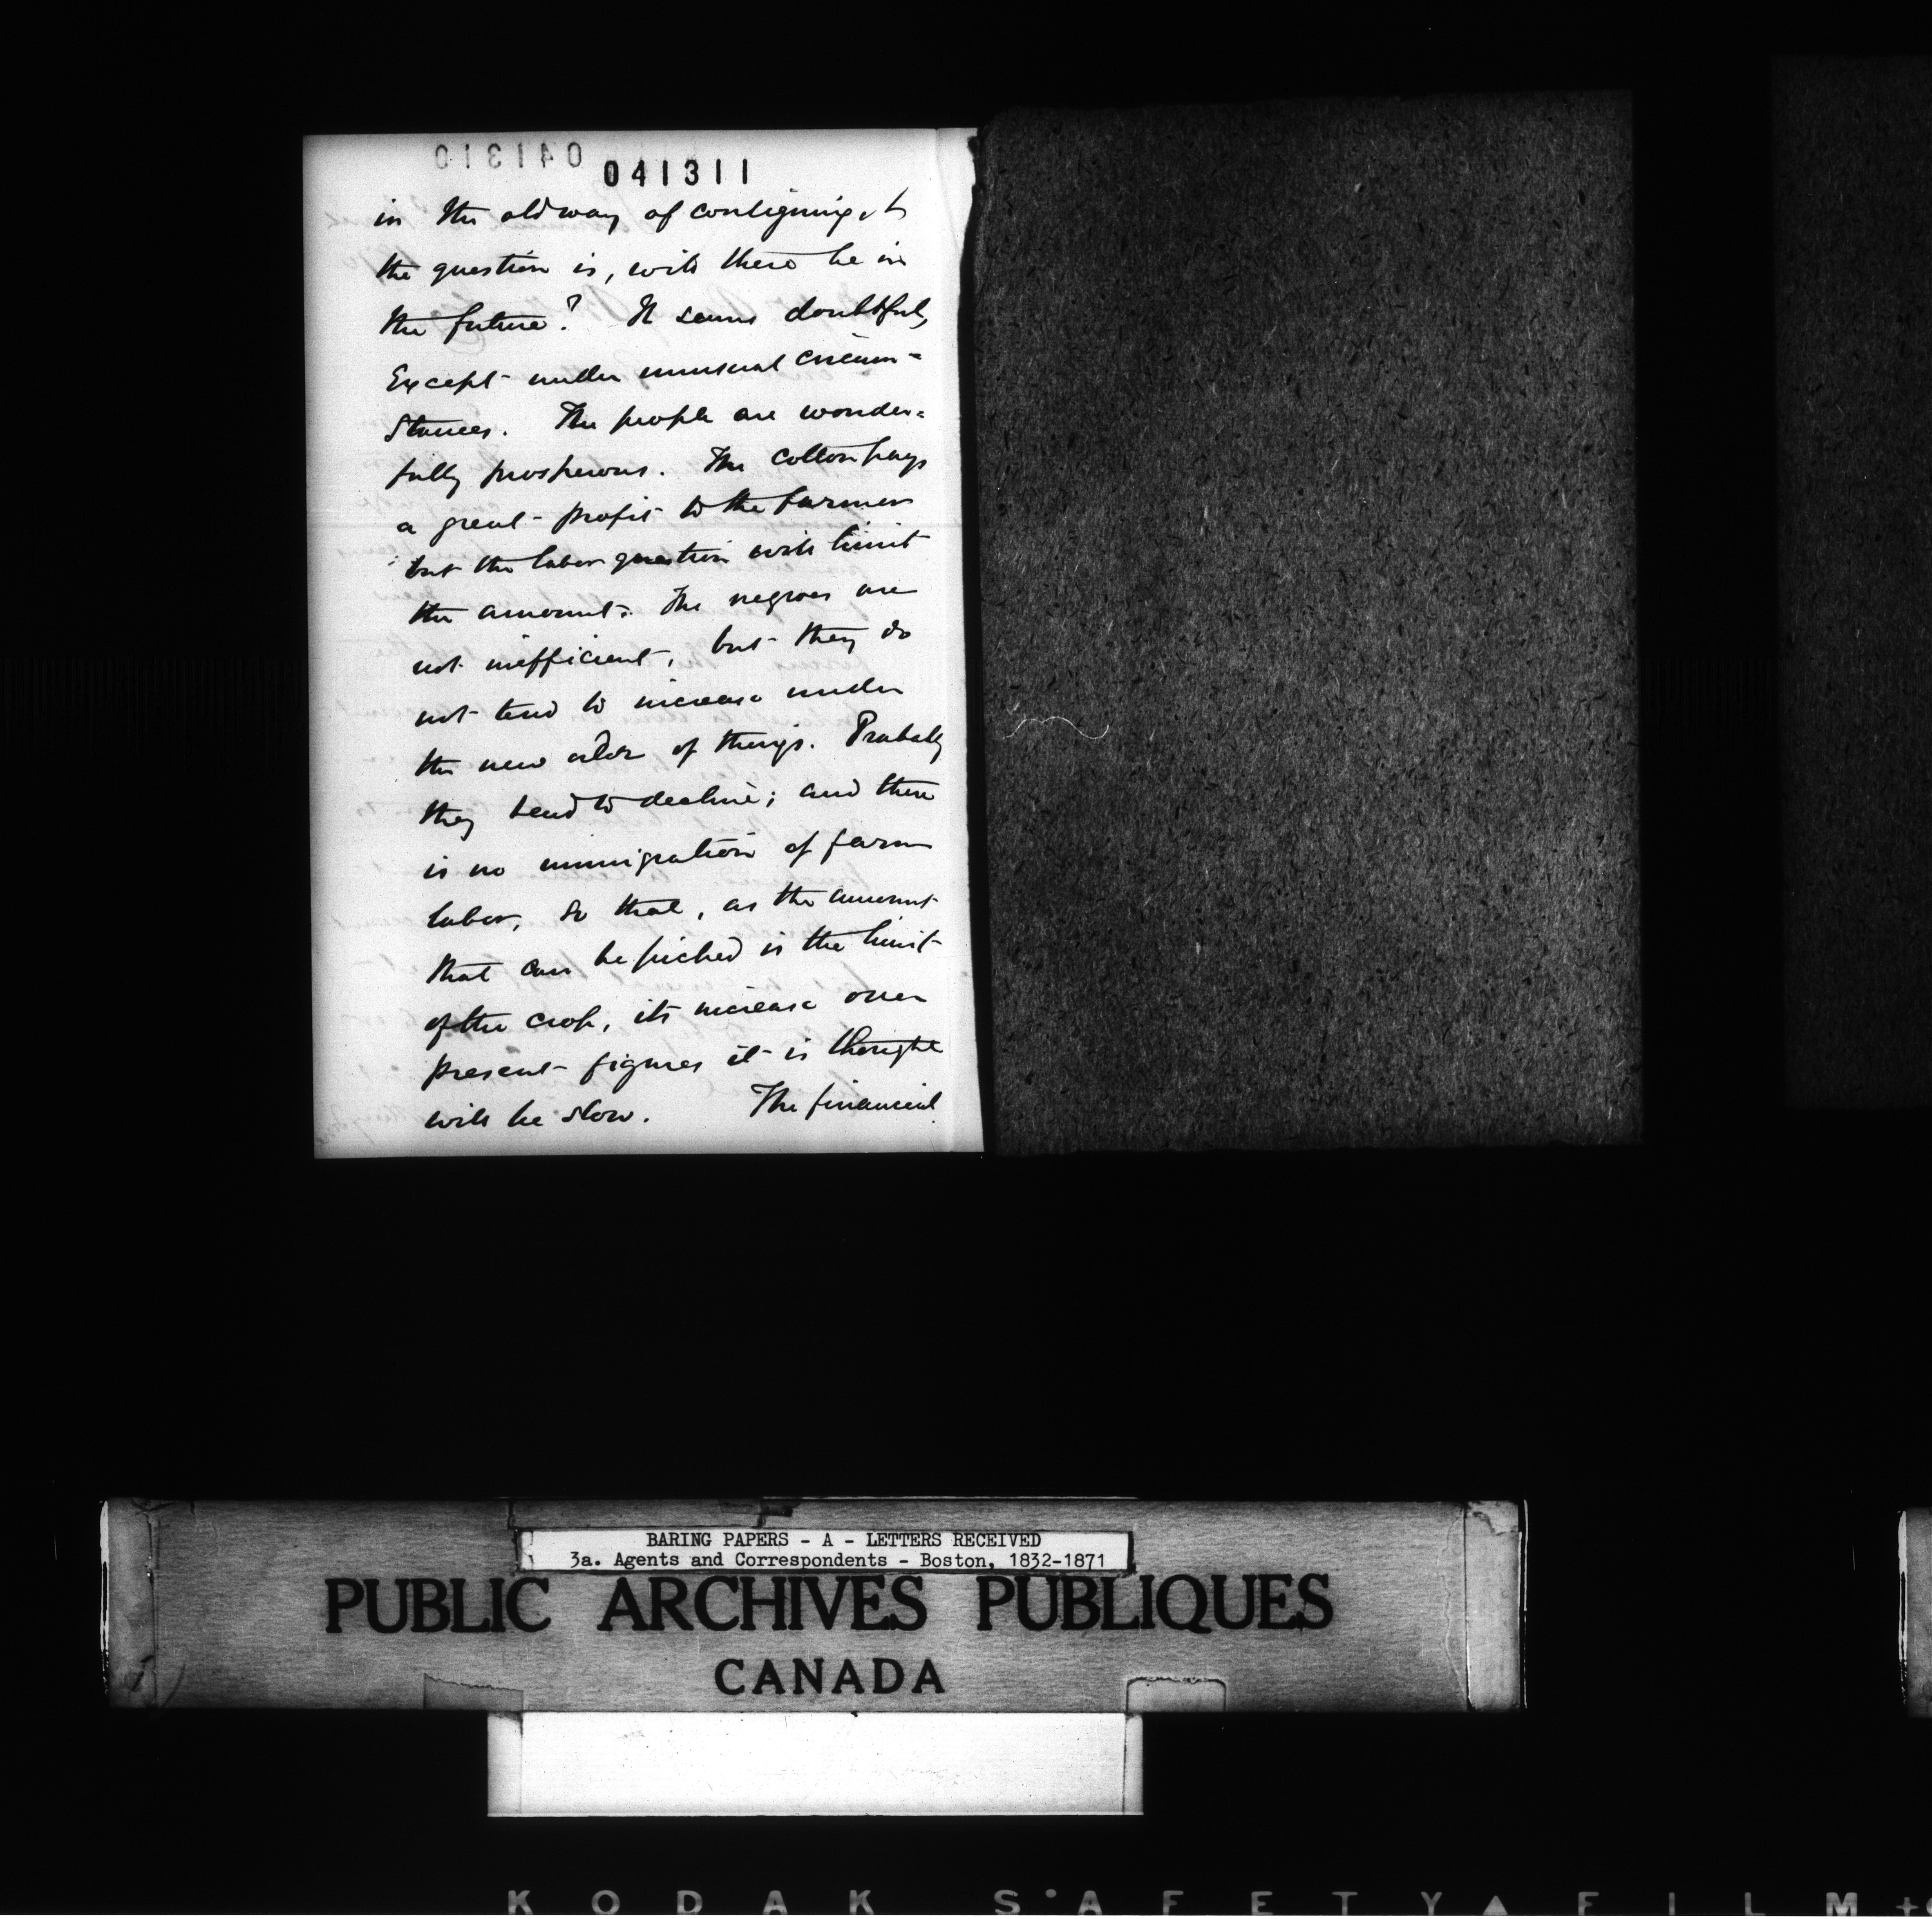 041310
041311
in the old way of consigning, &
the question is, will there be in
the future? It seems doubtful,
Except under unusual circum=
stances. The people are wonder=
fully prosperous. The cotton pays
a great profit to the farmer
but the labor question will limit
the amount. The negroes are
not inefficient, but they do
not tend to increase under
the new order of things. Probably
they tend to decline; and there
is no immigration of farm
labor, so that, as the amount
that can be picked is the limit
of the crop, its increase over
present figures it is thought
will be slow. The financial
BARING PAPERS - A - LETTERS RECEIVED
3a. Agents and Correspondents - Boston, 1832-1871
PUBLIC ARCHIVES PUBLIQUES
CANADA
KODAK SAFETY FILM